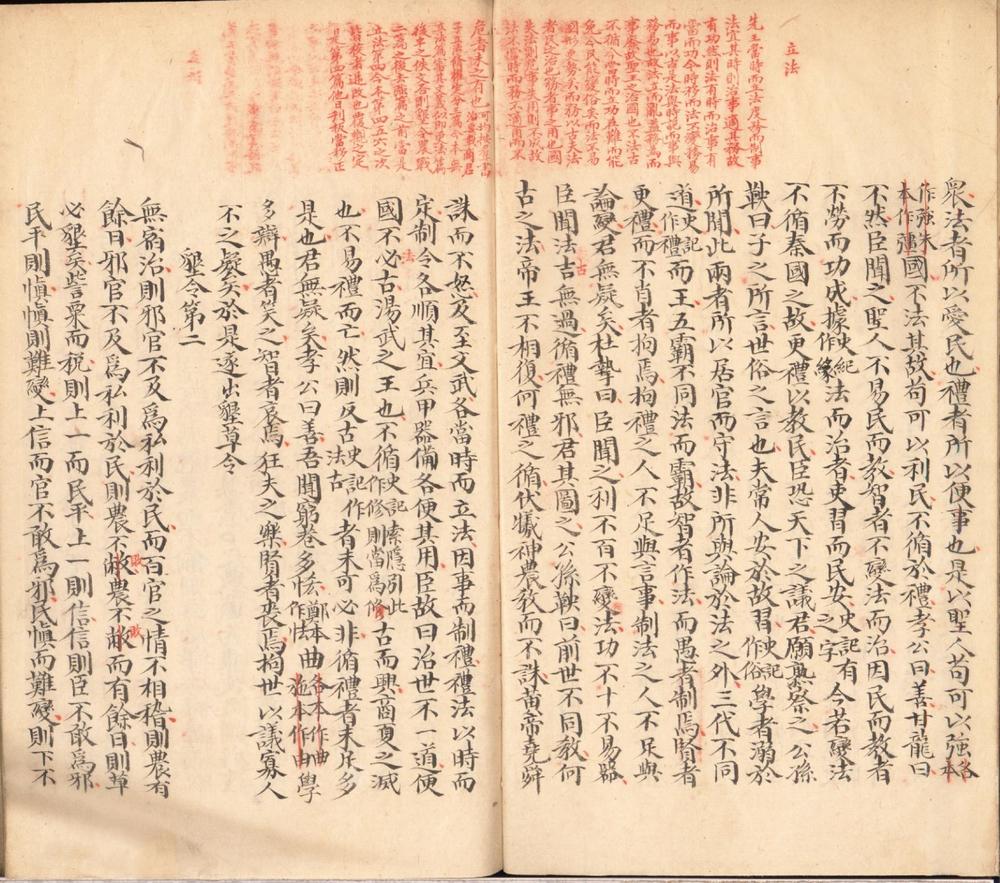 立法
先王當時而立法度務而制事
法宜其時則治事適其務故
有功然則法有時而治事有
當而功今時移而法不變務易
而事以古是法與時詭而事與
務易也故法立而亂益務為而
事廢故聖王之治國也不法古
不循今當時而立功在難而能
免今民能變俗矣而法不易
國形更勢矣而務以古夫法
者民之治也務者事之用也國
失法則危事失用則不成故
法不當時而務不適用而不
危者未之有也
衆法者所以愛民也禮者所以便事也是以聖人苟可以強各本
作強朱本作彊國不法其故苟可以利民不循於禮孝公曰善甘龍曰
不然臣聞之聖人不易民而教智者不變法而治因民而教者
不勞而功成據史紀作緣法而治者吏習而民安史記有之字今若變法
不循秦國之故更禮以教民臣恐天下之議君願熟察之公孫
鞅曰子之所言世俗之言也夫常人安於故習史記作俗學者溺於
所聞此兩者所以居官而守法非所與論於法之外三代不同
道史記作禮而王五霸不同法而霸故智者作法而愚者制焉賢者
更禮而不肖者拘焉拘禮之人不足與言事制法之人不足與
論變君無疑矣杜摯曰臣聞之利不百不變法功不十不易器
臣聞法古無過循禮無邪君其圖之公孫鞅曰前世不同教何
古之法帝王不相復何禮之循伏犧神農教而不誅黄帝堯舜
誅而不怒及至文武各當時而立法因事而制禮禮法以時而
定制令各順其宜兵甲器備各便其用臣故曰治世不一道便
國不必古湯武之王也不循史記作修索隱引此則當為脩古而興商夏之滅
也不易禮而亡然則反古史記作法古者未可必非循禮者未足多
是也君無疑矣孝公曰善吾聞窮巷多恡鄭本作怯曲各本作曲施本作由學
多辯愚者笑之智者哀焉狂夫之樂賢者喪焉拘世以議寡人
不之疑矣於是遂出墾草令
墾令第二
無宿治則邪官不及為私利於民而百官之情不相稽則農有
餘日邪官不及為私利於民則農不敝農不敝而有餘日則草
必墾矣訾粟而税則上一而民平上一則信信則臣不敢為邪
民平則慎慎則難變上信而官不敢為邪民慎而難變則下不